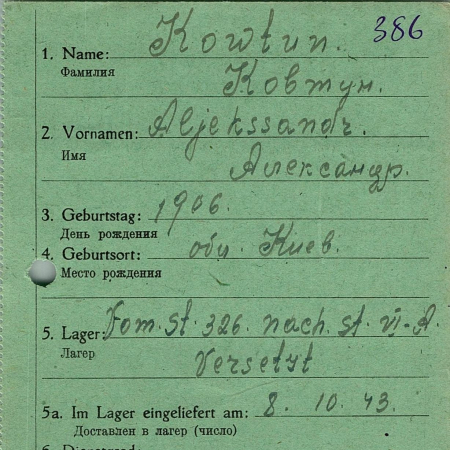 386
1. Name: Kowtun.
Фамилия
Ковтун.
2. Vornamen: Aljekssandr.
Имя
Александр.
3. Geburtstag: 1906.
День рождения
4. Geburtsort: обл. Киев.
Место рождения
5. Lager: Vom. St. 326. nach. St. VI-A.
Лагер
Versetzt
5a. Im Lager eingeliefert am: 8. 10. 43.
Доставлен в лагер (число)